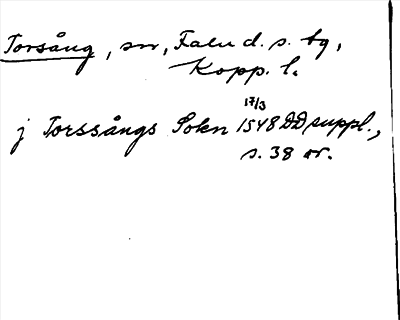 Torsång, sn, Falu d. s. bg,
Kopp. l.
17/3
j Torssångs Sokn 1548 DD suppl.,
s. 38 or.